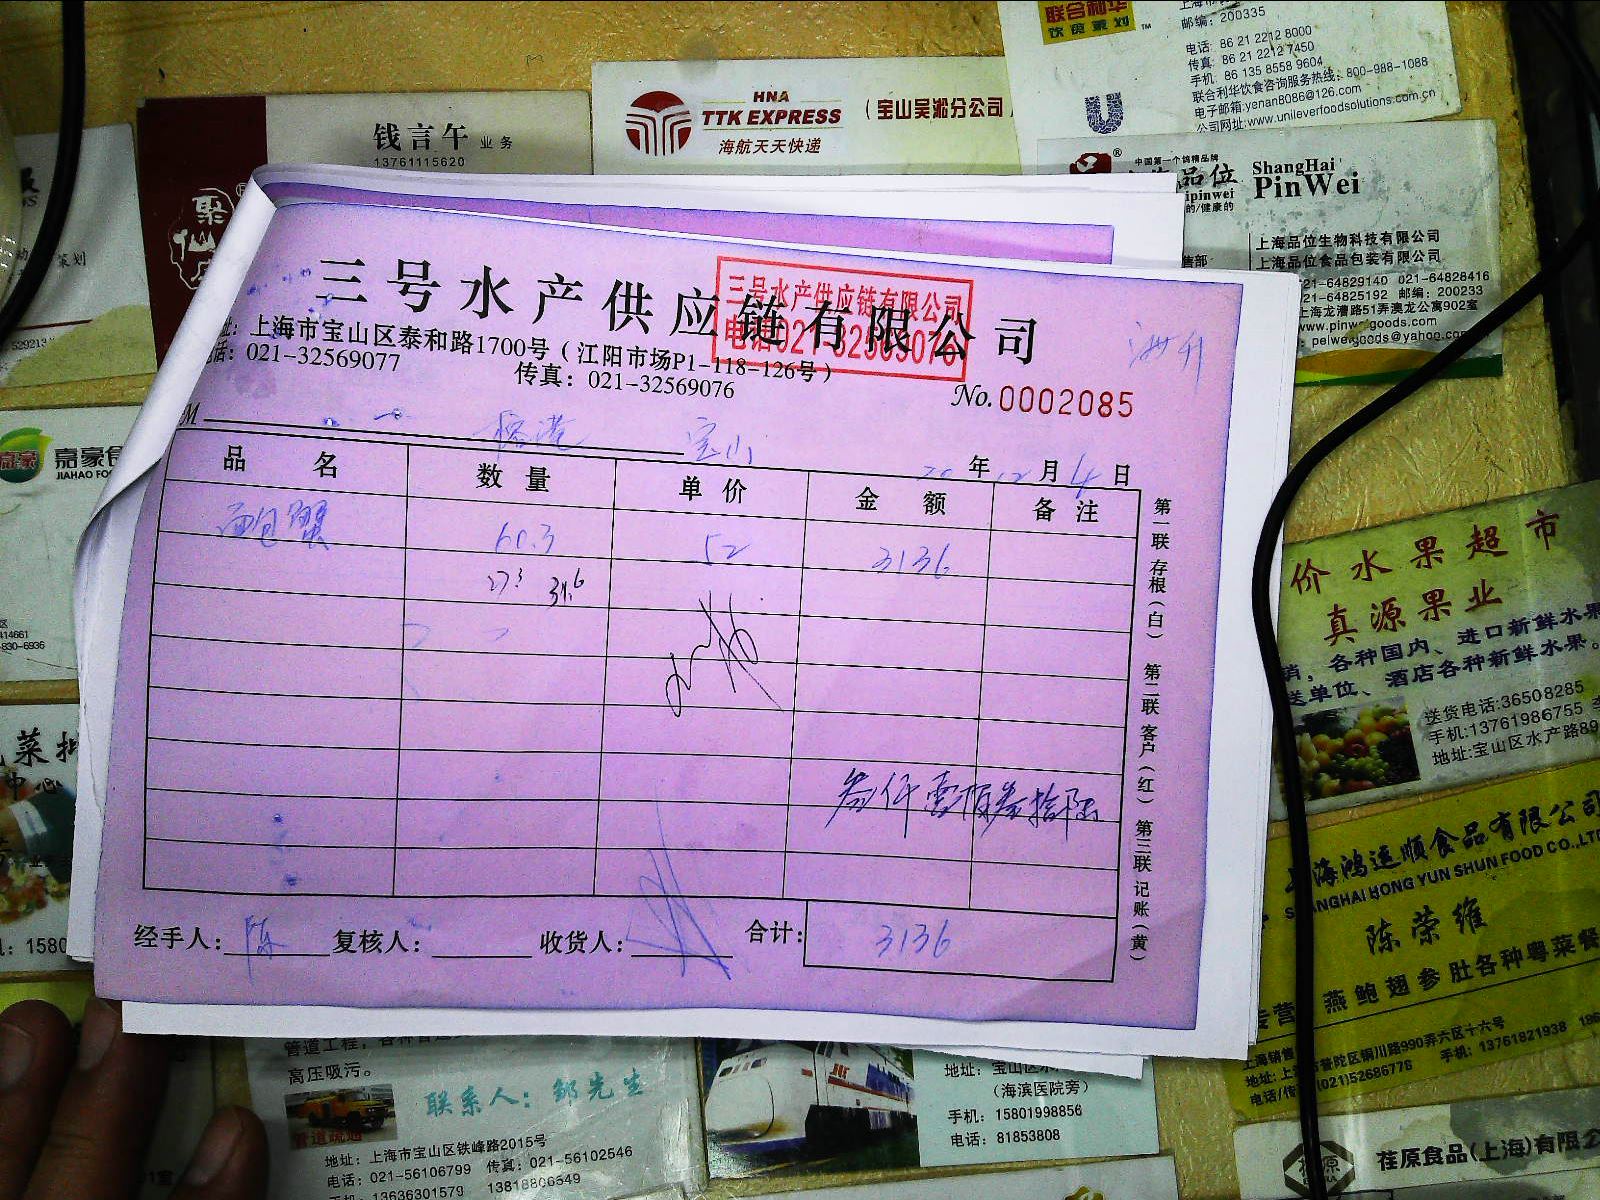 联合利华
饮食策划
邮编: 200335
电话: 86 21 2212 8000
传真: 86 21 2212 7450
手机: 86 135 8558 9604
联合利华饮食咨询服务热线: 800-988-1088
电子邮箱: yenan8086@126.com
公司网址: www.unileverfoodsolutions.com.cn
HNA
TTK EXPRESS
海航天天快递
(宝山吴淞分公司
钱言午 业务
13761115620
聚
中国第一个鸽精品牌
品位
ShangHai
PinWei
上海品位生物科技有限公司
上海品位食品包装有限公司
售部
21-64829140 021-64828416
21-64825192 邮编: 200233
上海龙漕路51弄澳龙公寓902室
www.pinweigoods.com
: pelweygoods@yahoo.co
三号水产供应链有限公司
三号水产供应链有限公司
址: 上海市宝山区泰和路1700号(江阳市场P1-118-126号)
话: 021-32569077
传真: 021-32569076
No. 0002085
M
宝山
年 12 月 4 日
品 名 数 量 单 价 金 额 备 注
面包蟹 60.3 52 3136
叁仟壹佰叁拾陆
经手人: 陈 复核人: 收货人: 合计: 3136
第一联 存根(白) 第二联 客户(红) 第三联 记账(黄)
嘉豪食
JIAHAO FOO
414661
-830-6936
菜批
中心
: 1580
价水果超市
真源果业
销, 各种国内、进口新鲜水果
送单位、酒店各种新鲜水果。
送货电话: 36508285
手机: 13761986755
地址: 宝山区水产路89
上海鸿运顺食品有限公司
SHANGHAI HONG YUN SHUN FOOD CO.,LTD
陈荣维
专营: 燕鲍翅参肚各种粤菜餐
地址: 上海市普陀区铜川路990弄六区十六号
电话/传真: (021)52686778 手机: 13761821938
管道工程,
高压吸污。
联系人: 邹先生
管道疏通
地址: 上海市宝山区铁峰路2015号
电话: 021-56106799 传真: 021-56102546
手机: 13636301579 13818806549
地址: 宝山区水
(海滨医院旁)
手机: 15801998856
电话: 81853808
荏原食品(上海)有限公